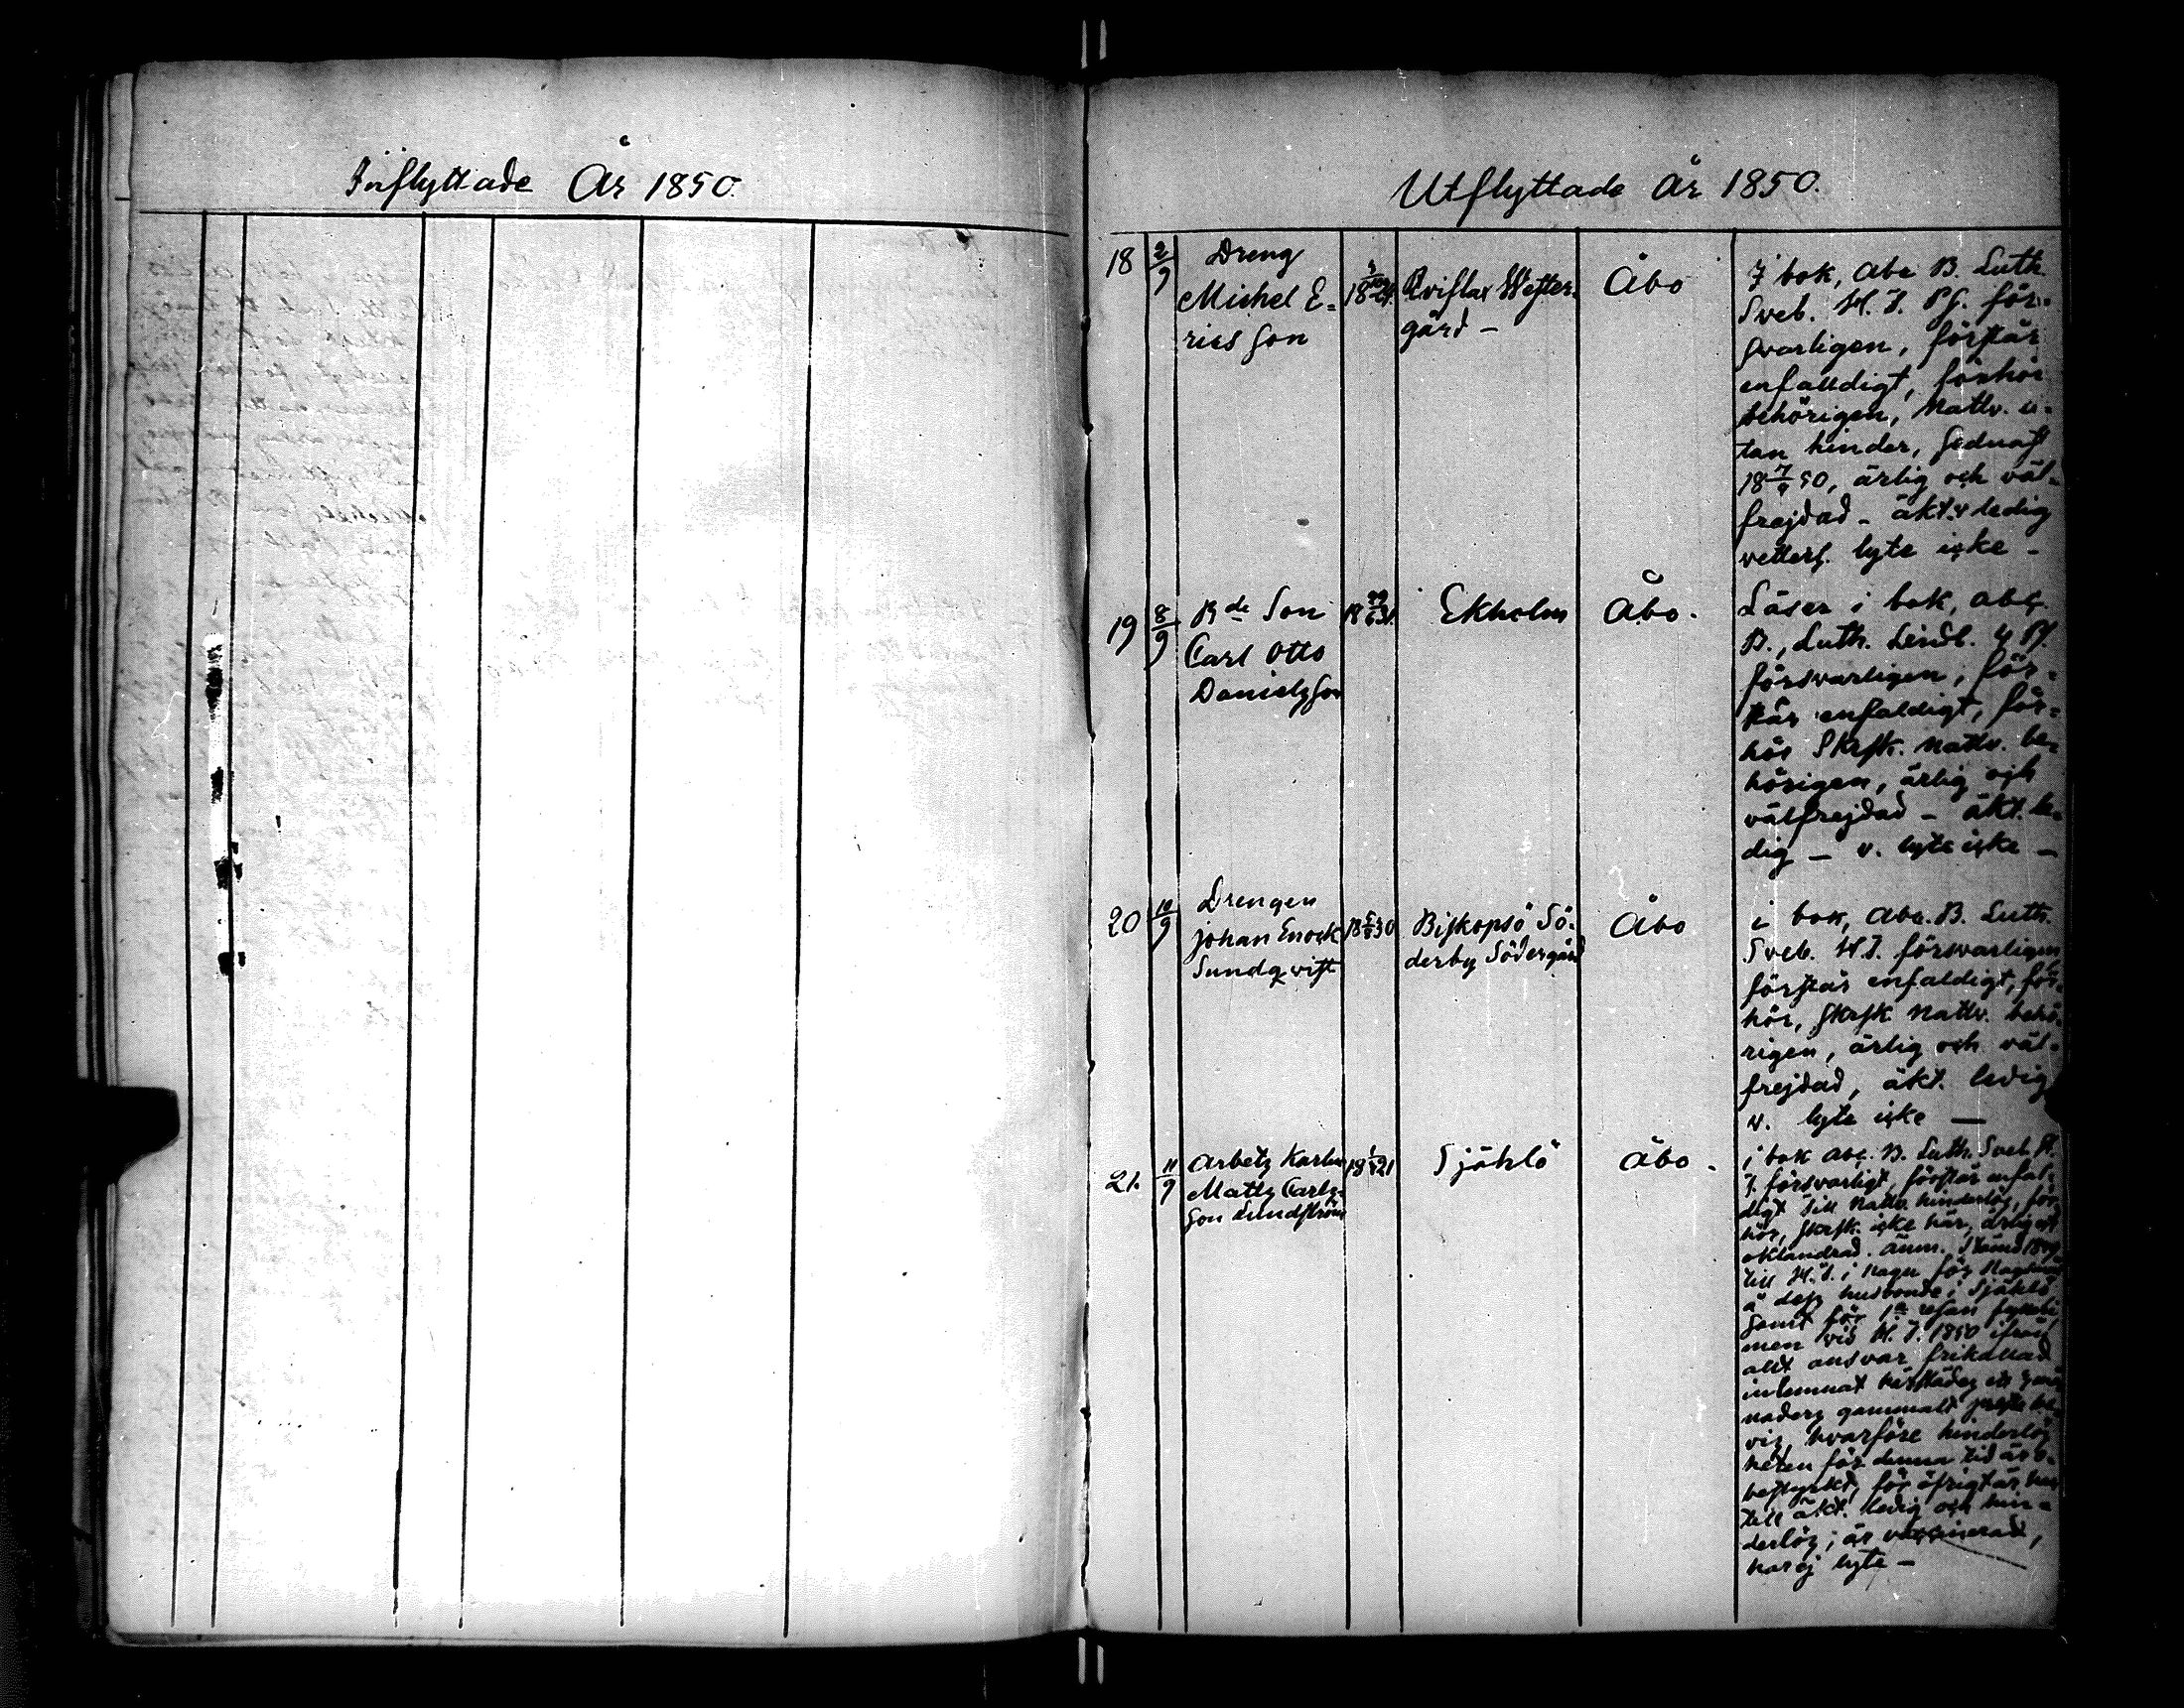 Inflyttade År 1850.
Utflyttade År 1850.
18 2/9 Dreng
Michel E-
ricsson
Kviflax Wester-
gård –
Åbo
I bok, abc B. Luth.
Sveb. H. T. Ps. för-
svarligen, förstår
enfalldigt, förhör
behörigen, Nattv. u-
tan hinder, sednast
18 7/9 50, ärlig och väl-
frejdad – äkt. ledig
lyte icke –
19 8/9 Bde Son
Carl Otto
Danielsson
Ekholm
Åbo.
Läser i bok, abc
B., Luth. Lindb. Ps.
försvarligen, för-
står enfaldigt, för-
hör Skrft. nattv. be-
hörigen, ärlig och
välfrejdad – äkt. le-
dig – v. lyte icke –
20 10/9 Drengen
Johan Enock
Sundqvist
Biskopsö Sö-
derby Södergård
Åbo
i bok, abc. B. Luth.
Sveb. H.T. försvarligen
förstår enfaldigt, för-
hör, Skrft. Nattv. behö-
rigen, ärlig och väl-
frejdad, äkt. ledig
v. lyte icke –
21. 11/9 Arbets Karlen
Matts Carls-
son Lundström
18 21
Sjählö
Åbo.
i bok abc. B. Luth. Sveb. H.
T. försvarligt, förstår enfal-
digt till Nattv. hinderlös, för-
hör, Skrft. icke här, ärlig
oklandrad. Anm. 1849
till H.T. i Nagu för
å dess husbonde i Sjählö
samt för 1a resan
men vid H. T. 1850 ifrån
allt ansvar frikallad
inlemnat ett
naders gammalt preste be-
vis, hvarföre hinderlös
heten för denna tid är o-
bestyrkt, för öfrigt är han
till äkt. ledig och hin-
derlös; är vaccinerad,
har ej lyte –